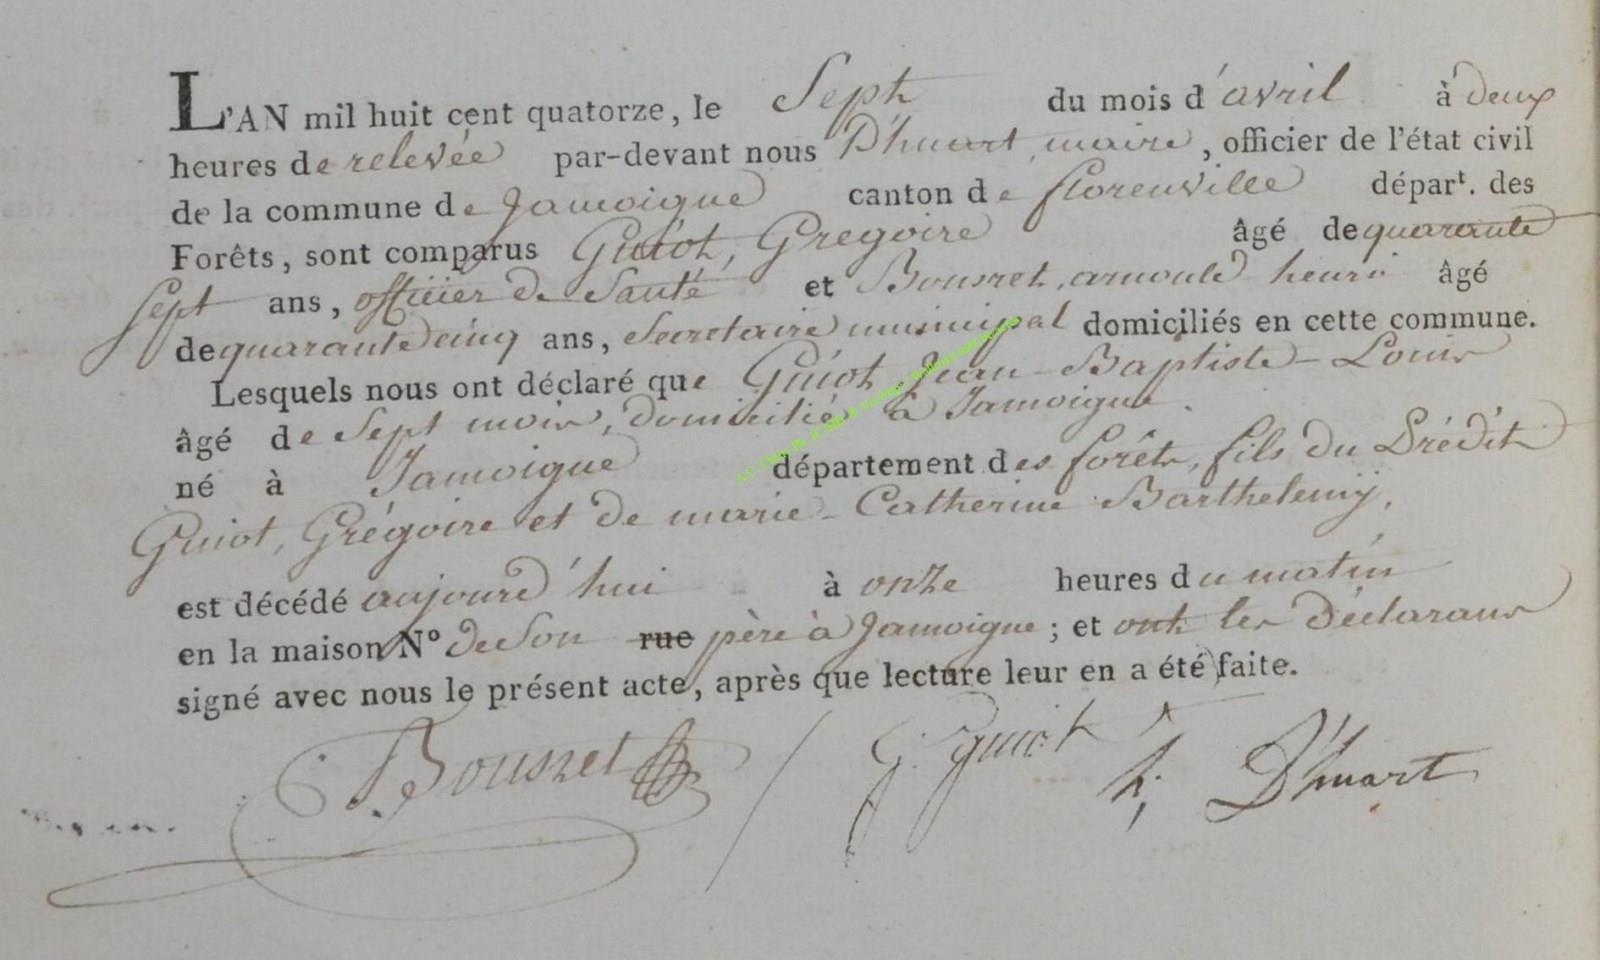 L'AN mil huit cent quatorze, le Sept du mois d'avril à deux
heures de relevée par-devant nous D'huart, maire, officier de l'état civil
de la commune de Jamoigne canton de florenville départ. des
Forêts, sont comparus Guiot, Gregoire âgé de quarante
Sept ans, officier de Santé et Bousret, arnould henri âgé
de quarante cinq ans, Secretaire municipal domiciliés en cette commune.
Lesquels nous ont déclaré que Guiot Jean-Baptiste-Louis
âgé de Sept mois, domicilié à Jamoigne.
né à Jamoigne département des forêts, fils du Prédit
Guiot, Grégoire et de marie-Catherine Barthelemy.
est décédé aujourd'hui à onze heures du matin
en la maison N° de Son rue père à Jamoigne; et ont les déclarans
signé avec nous le présent acte, après que lecture leur en a été faite.
Bousret G. guiot h; D'huart